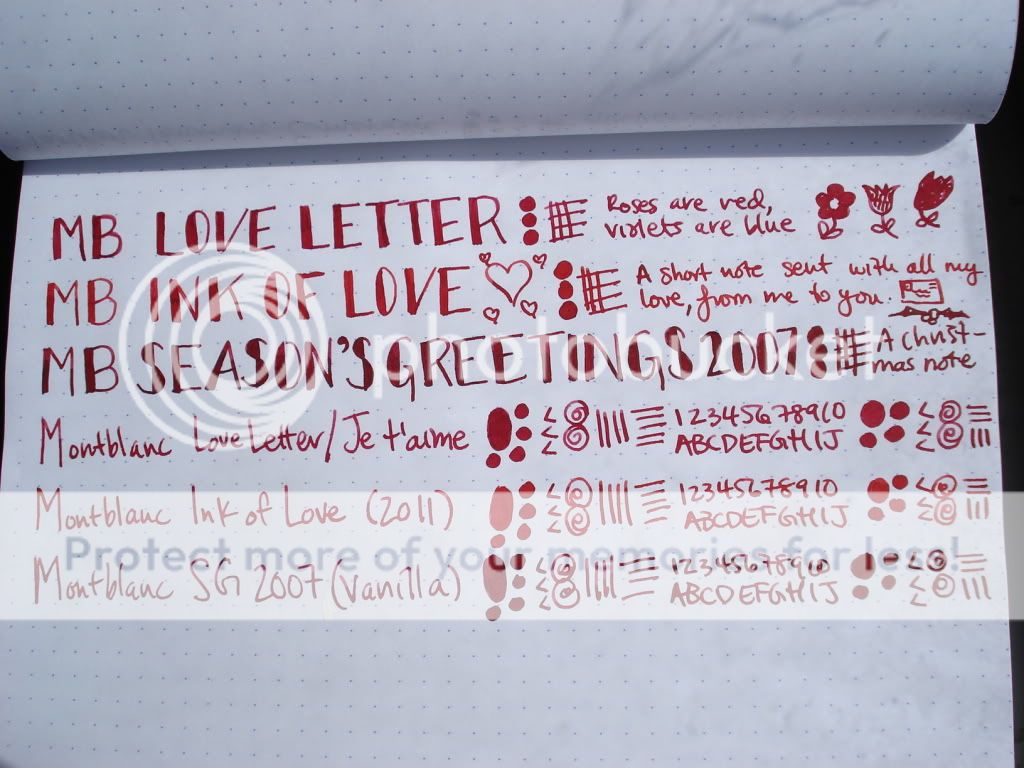 MB LOVE LETTER Roses are red,
violets are blue
MB INK OF LOVE A short note sent with all my
love, from me to you.
MB SEASON'S GREETINGS 2007 A Christ-
mas note
Montblanc Love Letter/Je t'aime 12345678910
ABCDEFGHIJ
Montblanc Ink of Love (2011) 12345678910
ABCDEFGHIJ
Montblanc SG 2007 (Vanilla) 12345678910
ABCDEFGHIJ
photobucket
Protect more of your memories for less!